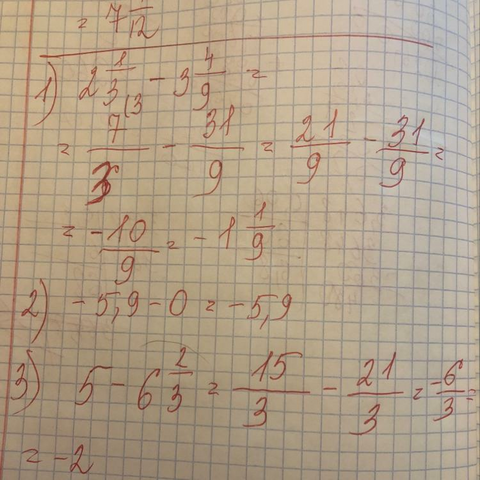 = 7 1/12
1) 2 1/3 (3 - 3 4/9 =
= 7/3 - 31/9 = 21/9 - 31/9 =
= -10/9 = -1 1/9
2) -5,9 - 0 = -5,9
3) 5 - 6 2/3 = 15/3 - 21/3 = -6/3 =
= -2